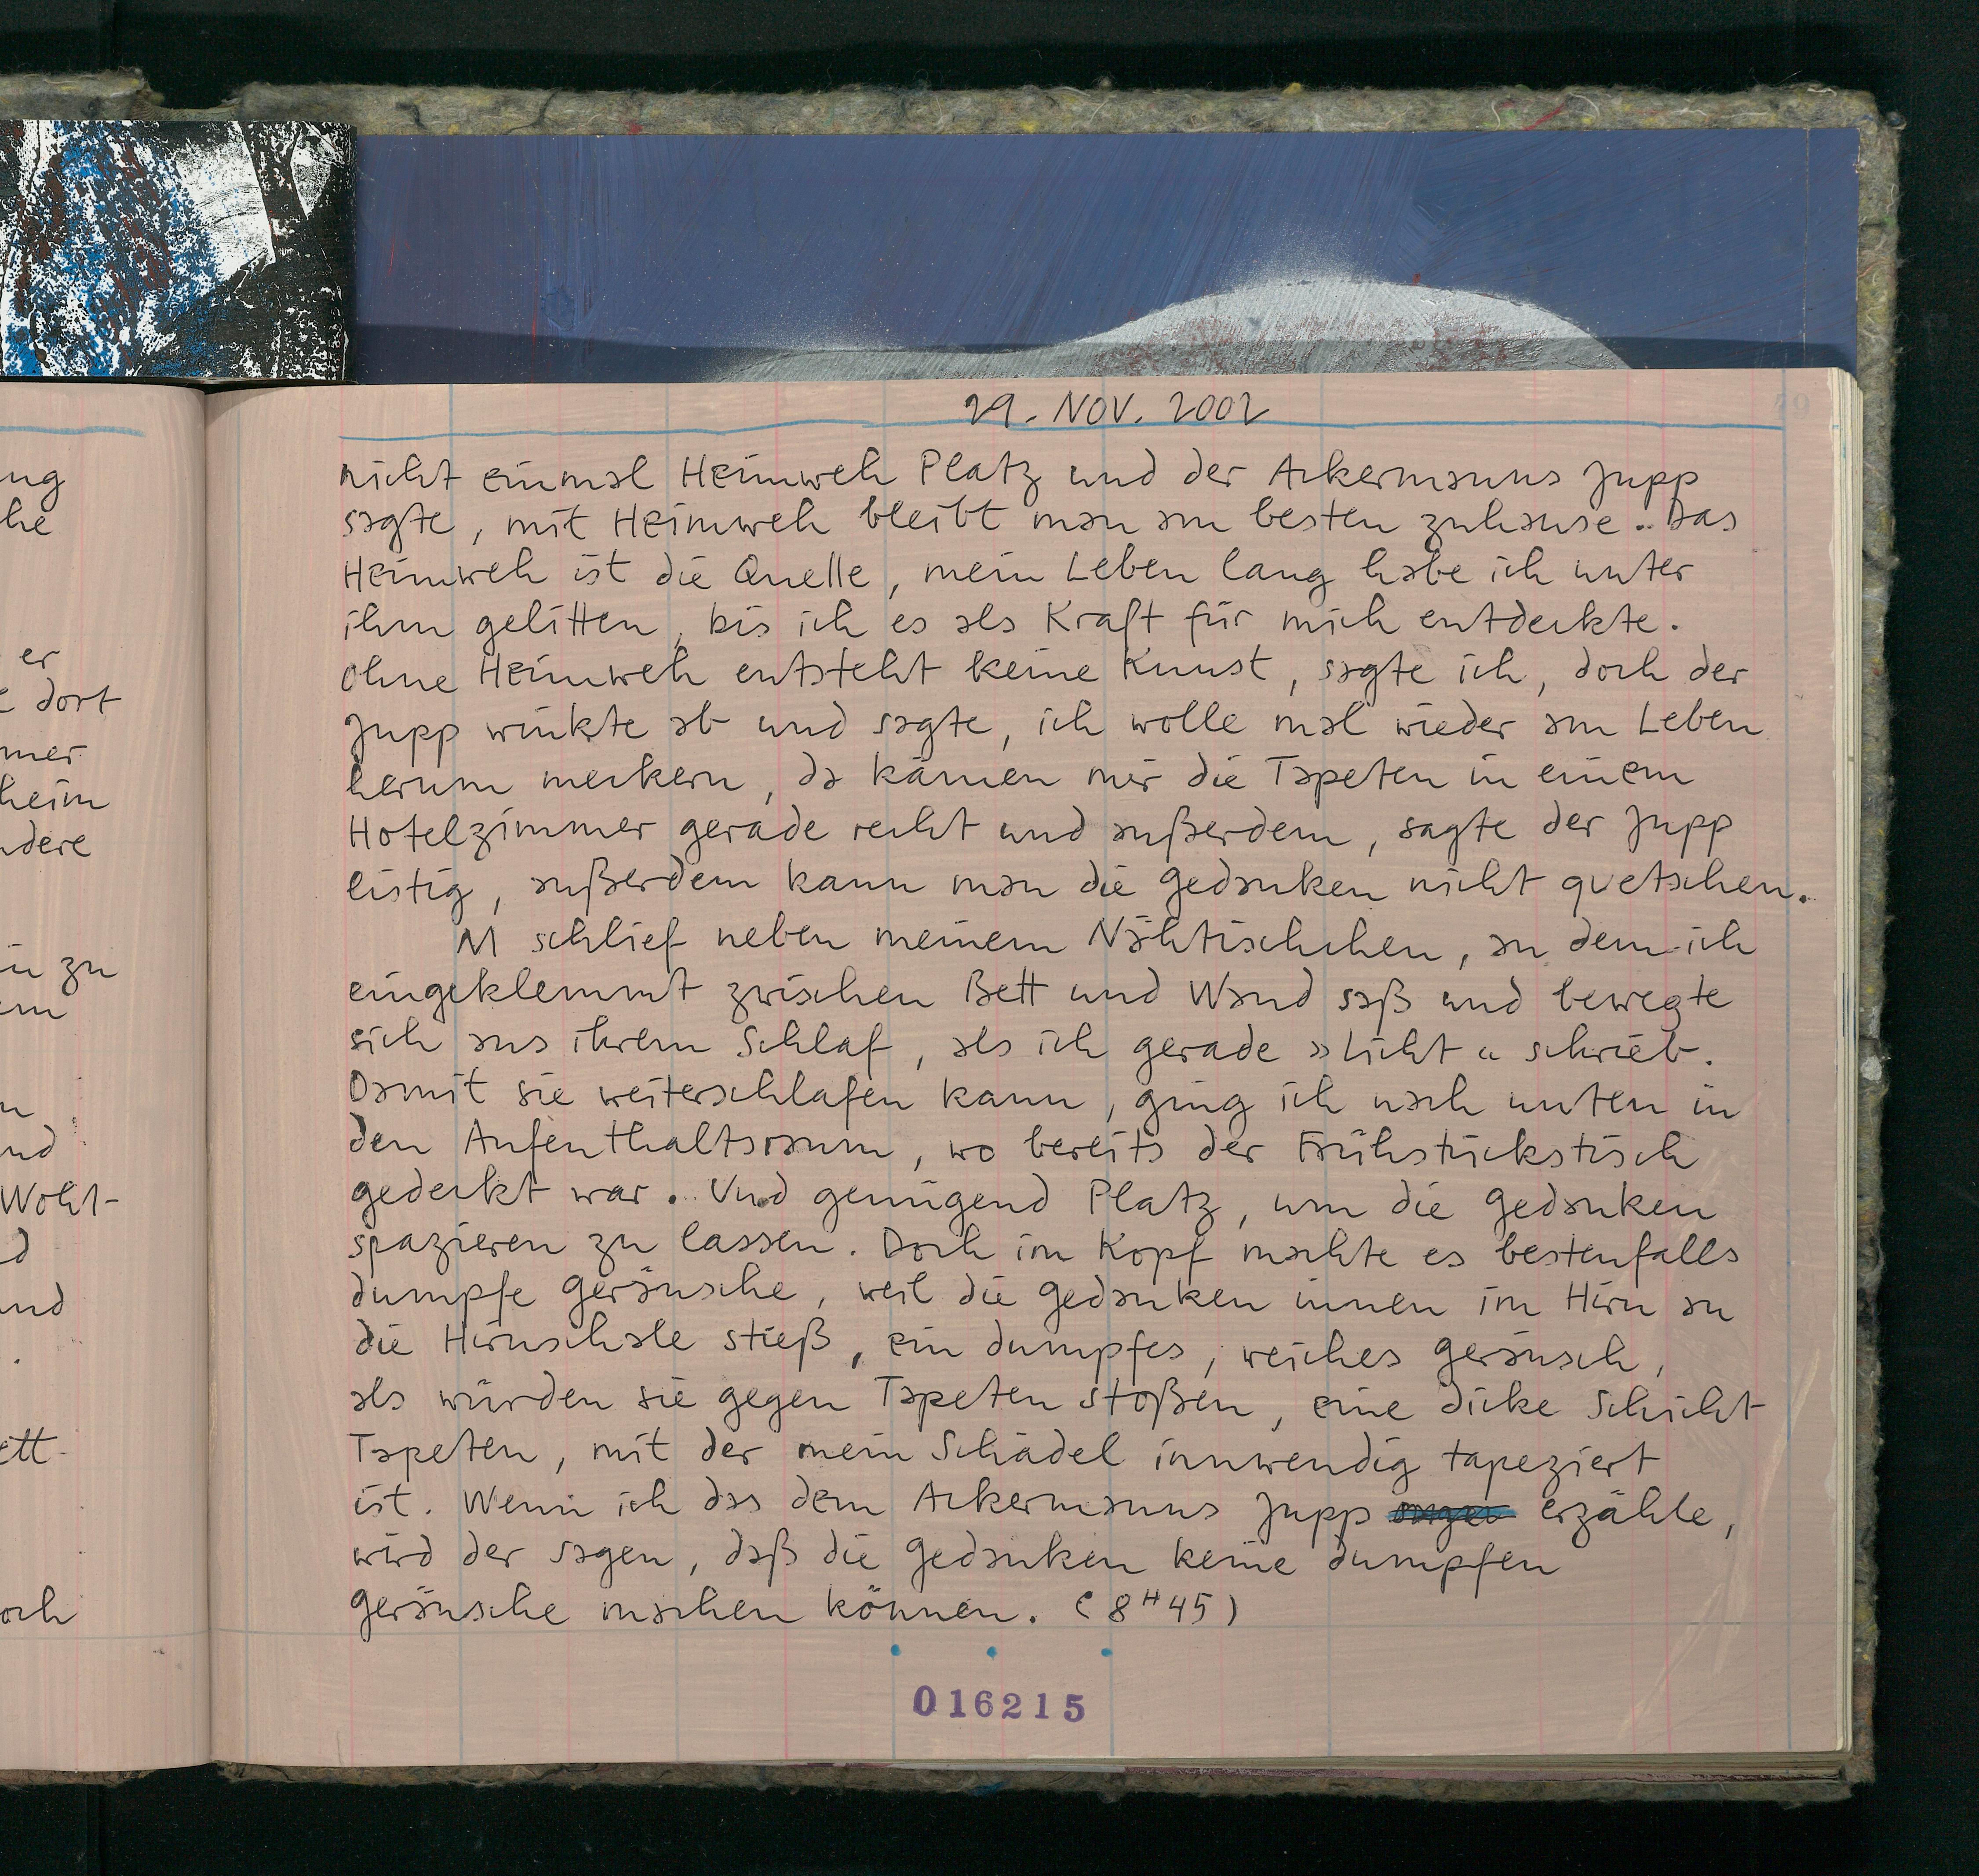 ung
he
er
e dort
mer
heim
ndere
in zu
em
n
nd
Wohl-
d
und
.
ett-
och
29. NOV. 2002
nicht einmal Heimweh Platz und der Ackermanns Jupp
sagte, mit Heimweh bleibt man am besten zuhause. Das
Heimweh ist die Quelle, mein Leben lang habe ich unter
ihm gelitten, bis ich es als Kraft für mich entdeckte.
Ohne Heimweh entsteht keine Kunst, sagte ich, doch der
Jupp winkte ab und sagte, ich wolle mal wieder am Leben
herum meckern, da kämen mir die Tapeten in einem
Hotelzimmer gerade recht und außerdem, sagte der Jupp
listig, außerdem kann man die Gedanken nicht quetschen.
M schlief neben meinem Nähtischchen, an dem ich
eingeklemmt zwischen Bett und Wand saß und bewegte
sich aus ihrem Schlaf, als ich gerade »Licht« schrieb.
Damit sie weiterschlafen kann, ging ich nach unten in
den Aufenthaltsraum, wo bereits der Frühstückstisch
gedeckt war. Und genügend Platz, um die Gedanken
spazieren zu lassen. Doch im Kopf machte es bestenfalls
dumpfe Geräusche, weil die Gedanken innen im Hirn an
die Hirnschale stieß, ein dumpfes, weiches Geräusch,
als würden sie gegen Tapeten stoßen, eine dicke Schicht
Tapeten, mit der mein Schädel innwendig tapeziert
ist. Wenn ich das dem Ackermanns Jupp erzähle,
wird der sagen, daß die Gedanken keine dumpfen
Geräusche machen können. (8H45)
016215